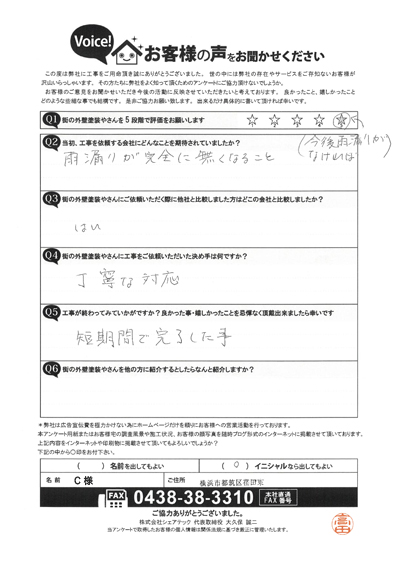 Voice!
お客様の声をお聞かせください
この度は弊社に工事をご用命頂き誠にありがとうございました。世の中には弊社の存在やサービスをご存知ないお客様が
沢山いらっしゃいます。その方たちに弊社をよく知って頂くためのアンケートにご協力頂けないでしょうか。
お客様のご意見をお聞かせいただき今後の活動に反映させていただきたいと考えております。良かったこと、嬉しかったこと
どのような些細な事でも結構です。是非ご協力お願い致します。出来るだけ具体的に書いて頂ければ幸いです。
Q1 街の外壁塗装やさんを5段階で評価をお願いします ☆ ☆ ☆ ☆ ☆
(今後雨漏りが
なければ)
Q2 当初、工事を依頼する会社にどんなことを期待されていましたか?
雨漏りが完全に無くなること
Q3 街の外壁塗装やさんにご依頼いただく際に他社と比較しました方はどこの会社と比較しましたか?
はい
Q4 街の外壁塗装やさんに工事をご依頼いただいた決め手は何ですか?
丁寧な対応
Q5 工事が終わってみていかがですか?良かった事・嬉しかったことを忌憚なく頂戴出来ましたら幸いです
短期間で完了した事
Q6 街の外壁塗装やさんを他の方に紹介するとしたらなんと紹介しますか?
*弊社は広告宣伝費を極力かけない為にホームページだけを頼りにお客様への営業活動を行っております。
本アンケート用紙またはお客様宅の調査風景や施工状況、お客様の顔写真を随時ブログ形式のインターネットに掲載させて頂いております。
上記内容をインターネットや印刷物に掲載させて頂いてもよろしいでしょうか?
下記の中から〇印をお付下さい。
( )名前を出してもよい ( ○ )イニシャルなら出してもよい
名前 C 様 ご住所 横浜市都筑区荏田東
FAX 0438-38-3310 本社直通 FAX番号
ご協力ありがとうございました。
株式会社シェアテック 代表取締役 大久保 誠二
当アンケートで取得したお客様の個人情報は関係法規に基づき厳正に管理いたします。